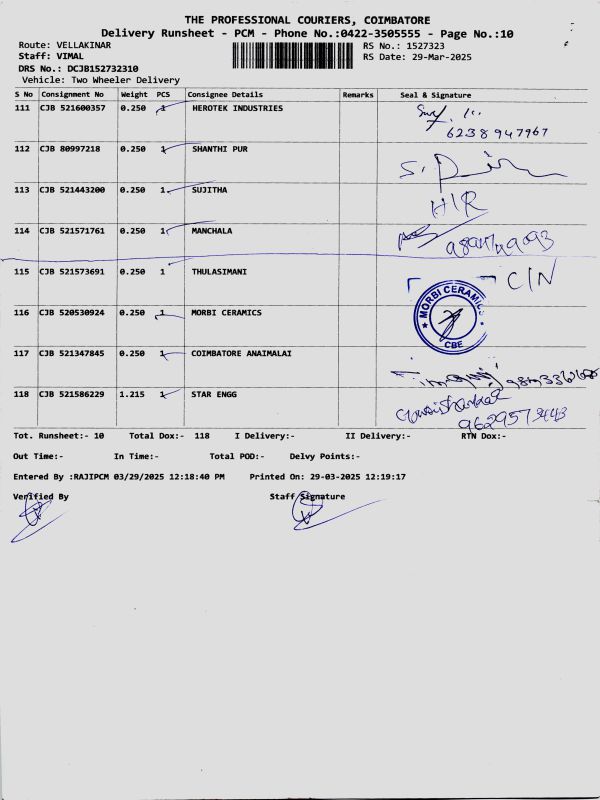 THE PROFESSIONAL COURIERS, COIMBATORE
Delivery Runsheet - PCM - Phone No.:0422-3505555 - Page No.:10
Route: VELLAKINAR RS No.: 1527323
Staff: VIMAL RS Date: 29-Mar-2025
DRS No.: DCJB152732310
Vehicle: Two Wheeler Delivery
S No Consignment No Weight PCS Consignee Details Remarks Seal & Signature
111 CJB 521600357 0.250 1 HEROTEK INDUSTRIES
6238947967
112 CJB 80997218 0.250 1 SHANTHI PUR
113 CJB 521443200 0.250 1 SUJITHA H/R
114 CJB 521571761 0.250 1 MANCHALA
115 CJB 521573691 0.250 1 THULASIMANI C/N
116 CJB 520530924 0.250 1 MORBI CERAMICS MORBI CERAMICS CBE
117 CJB 521347845 0.250 1 COIMBATORE ANAIMALAI
118 CJB 521586229 1.215 1 STAR ENGG
Tot. Runsheet:- 10 Total Dox:- 118 I Delivery:- II Delivery:- RTN Dox:-
Out Time:- In Time:- Total POD:- Delvy Points:-
Entered By :RAJIPCM 03/29/2025 12:18:40 PM Printed On: 29-03-2025 12:19:17
Verified By Staff Signature